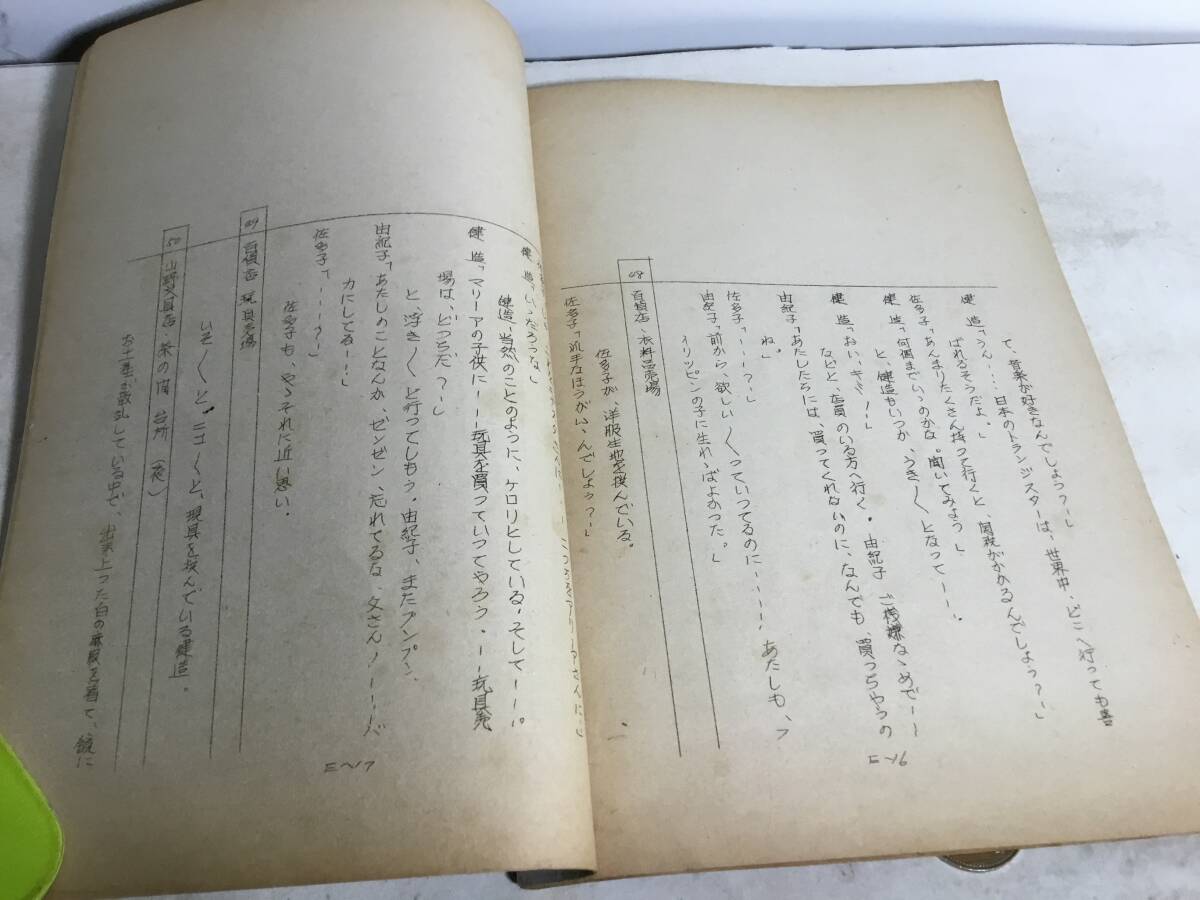 て、音楽が好きなんでしょう？―」
健 造「うん‥‥日本のトランジスターは、世界中、どこへ行っても喜
ばれるそうだよ。」
佐多子「あんまりたくさん持って行くと、関税がかかるんでしょう？―」
健 造「何個までいゝのかな。聞いてみよう」
と、健造もいつか、うき〱となって――。
健 造「おい、キミ！―」
などと、店員のいる方へ行く。由紀子 ご機嫌なゝめで――
由紀子「あたしたちには、買ってくれないのに、なんでも、買っちゃうの
ね。」
佐多子「―――？―」
由紀子「前から、欲しい〱っていってるのに――― あたしも、フ
ィリッピンの子に生れゝばよかった。」
48 百貨店・衣料品売場
佐多子が、洋服生地を挟んでいる。
佐多子「派手なほうがいゝんでしょう？―」
健 造「いゝだろうな」
健造、当然のことのように、ケロリとしている。そして――
健 造「マリーアの子供に――玩具を買っていってやろう。――玩具売
場は、どっちだ？―」
と、浮き〱と行ってしまう。由紀子、またプンプン、
由紀子「あたしのことなんか、ゼンゼン、忘れてるな、父さん！―――バ
カにしてる――」
佐多子「―――？―」
佐多子も、やゝそれに近い思い。
49 百貨店 玩具売場
いそ〱と、ニコ〱と、現具を挟んでいる健造。
50 山野文具店・茶の間 台所（夜）
お土産が散乱している中で、出来上った白の麻服を着て、鏡に